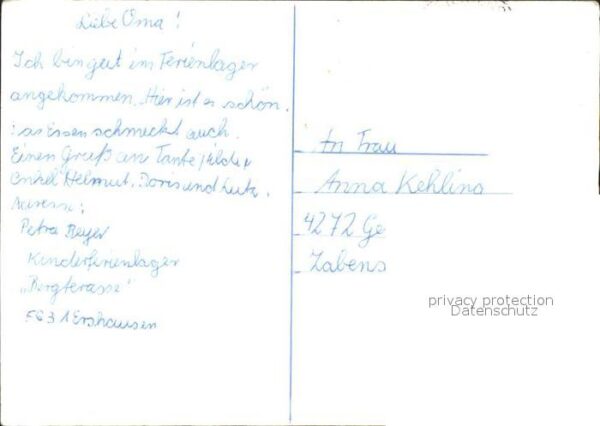 Liebe Oma!
Ich bin gut im Ferienlager
angekommen. Hier ist es schön.
as Essen schmeckt auch.
Einen Gruß an Tante Hilde,
Onkel Helmut, Doris und Lutz.
Adresse:
Petra Beyer
Kinderferienlager
„Bergterasse"
5631 Ershausen
An Frau
Anna Kehling
4272 Ge
Zabens
privacy protection
Datenschutz